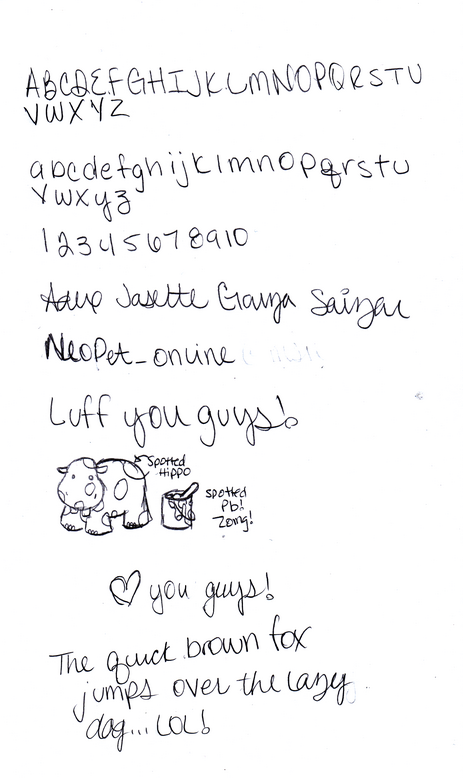 ABCDEFGHIJKLMNOPQRSTU
VWXYZ
abcdefghijklmnopqrstu
vwxyz
12345678910
Jasette
NeoPet_online
Luff you guys!
Spotted
Hippo
spotted
Pb!
Zomg!
♡ you guys!
The quick brown fox
jumps over the lazy
dog... LOL!